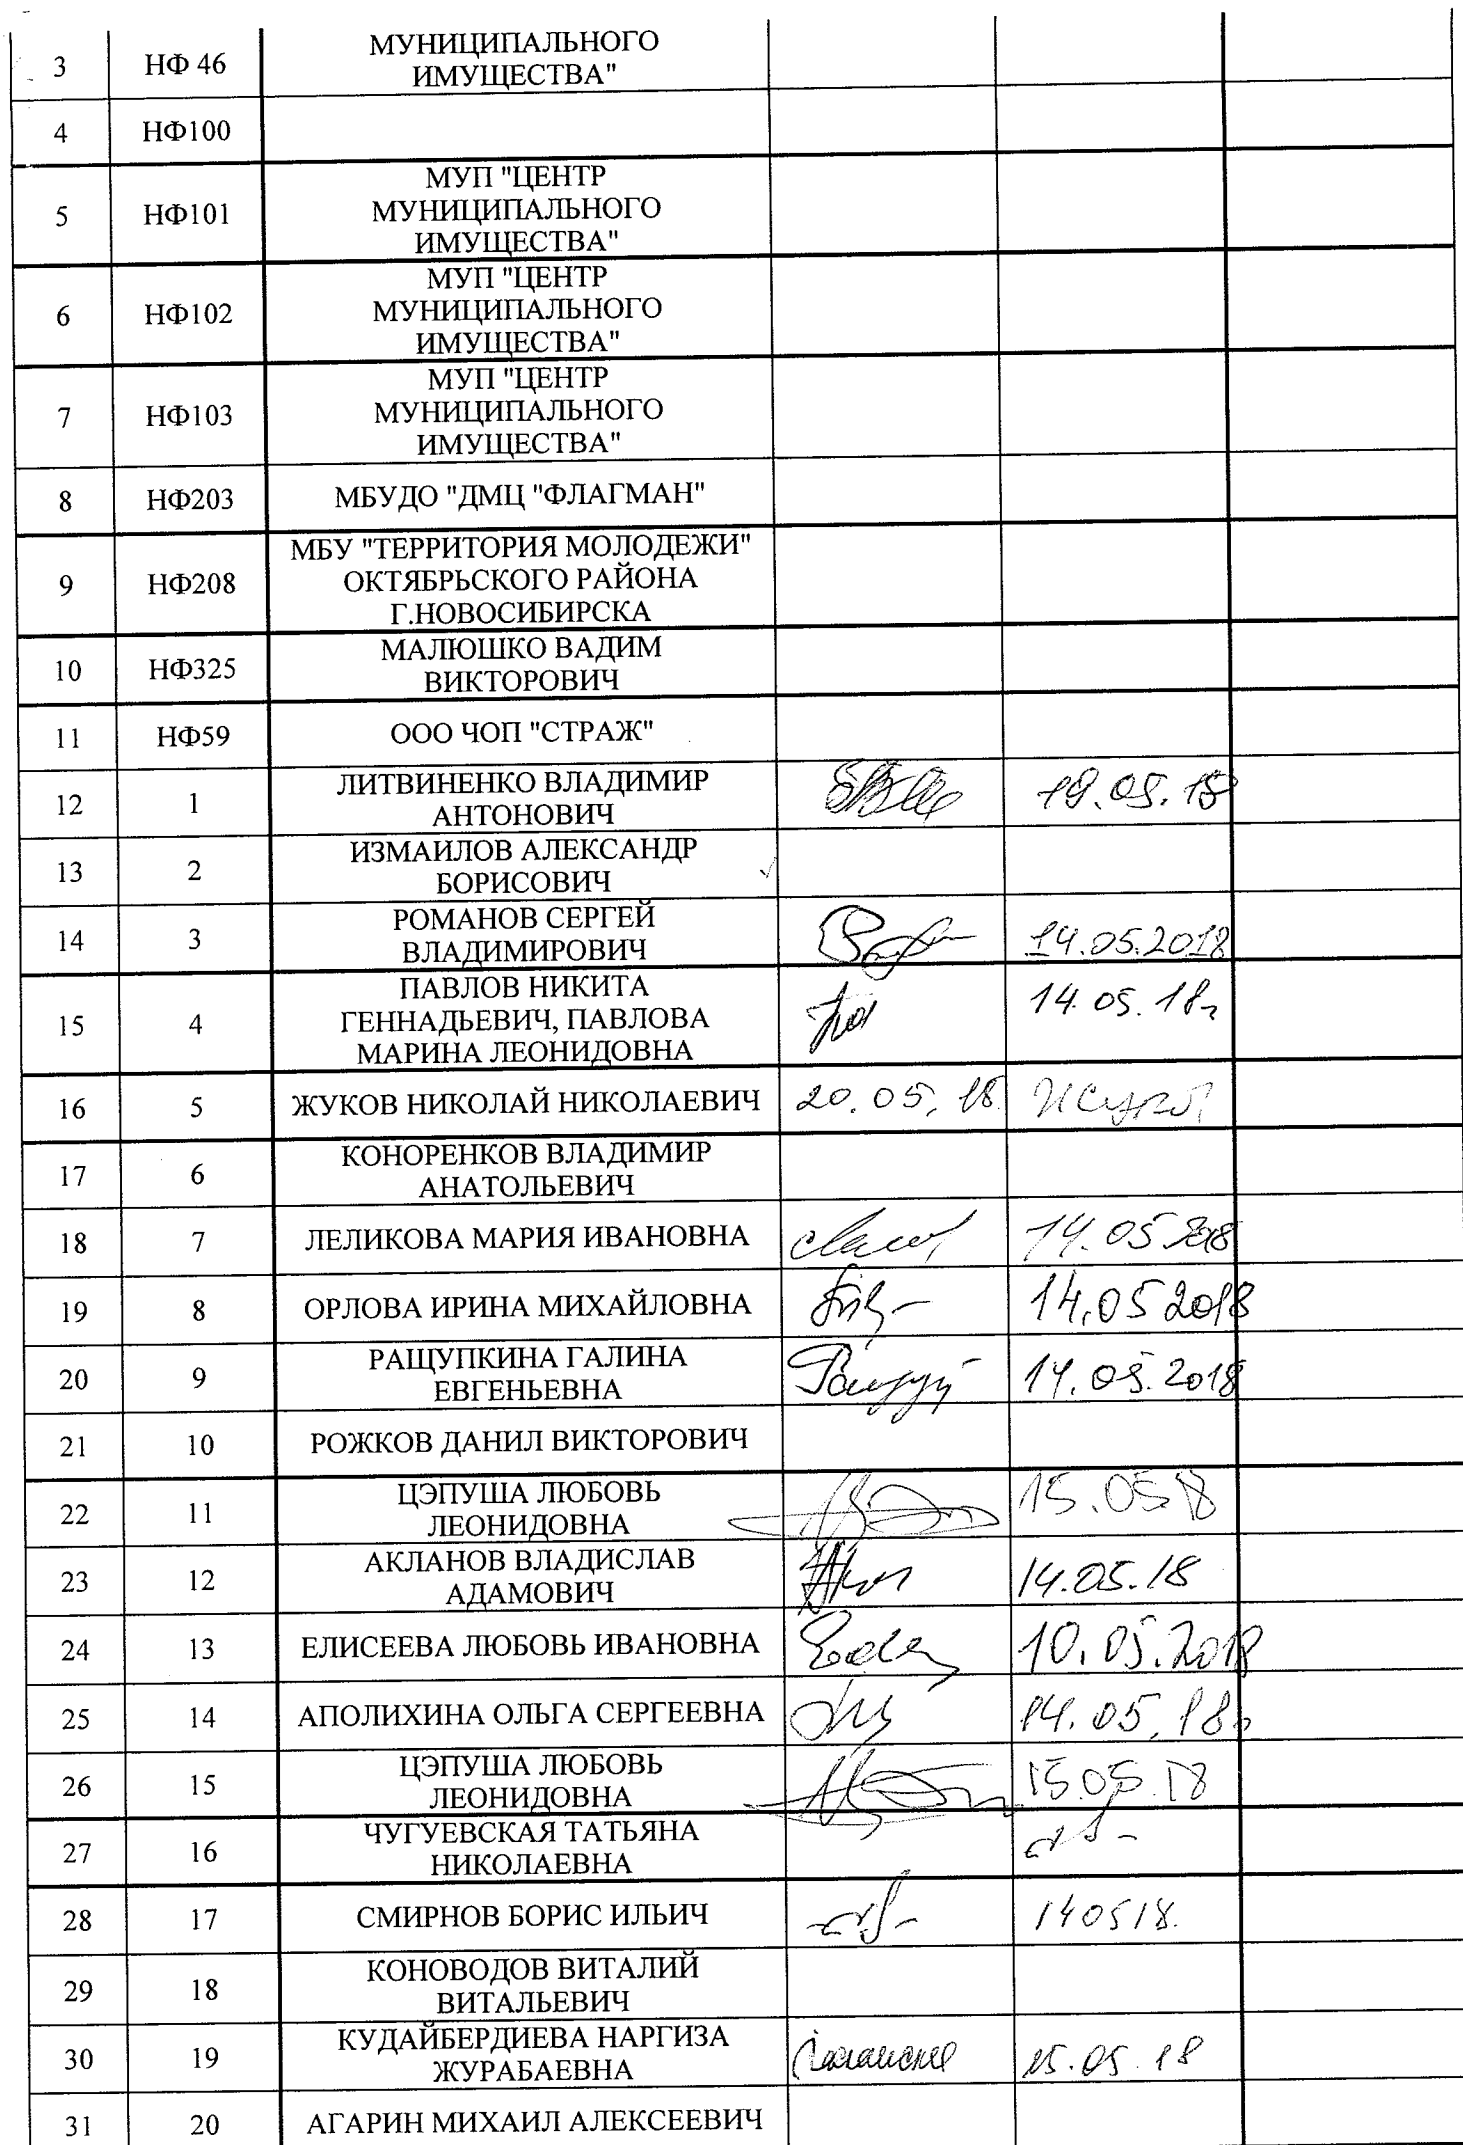 3 НФ 46 МУНИЦИПАЛЬНОГО
ИМУЩЕСТВА"
4 НФ100
5 НФ101 МУП "ЦЕНТР
МУНИЦИПАЛЬНОГО
ИМУЩЕСТВА"
6 НФ102 МУП "ЦЕНТР
МУНИЦИПАЛЬНОГО
ИМУЩЕСТВА"
7 НФ103 МУП "ЦЕНТР
МУНИЦИПАЛЬНОГО
ИМУЩЕСТВА"
8 НФ203 МБУДО "ДМЦ "ФЛАГМАН"
9 НФ208 МБУ "ТЕРРИТОРИЯ МОЛОДЕЖИ"
ОКТЯБРЬСКОГО РАЙОНА
Г.НОВОСИБИРСКА
10 НФ325 МАЛЮШКО ВАДИМ
ВИКТОРОВИЧ
11 НФ59 ООО ЧОП "СТРАЖ"
12 1 ЛИТВИНЕНКО ВЛАДИМИР
АНТОНОВИЧ
13 2 ИЗМАИЛОВ АЛЕКСАНДР
БОРИСОВИЧ
14 3 РОМАНОВ СЕРГЕЙ
ВЛАДИМИРОВИЧ 14.05.2018
15 4 ПАВЛОВ НИКИТА
ГЕННАДЬЕВИЧ, ПАВЛОВА
МАРИНА ЛЕОНИДОВНА 14.05.18г
16 5 ЖУКОВ НИКОЛАЙ НИКОЛАЕВИЧ 20.05.18
17 6 КОНОРЕНКОВ ВЛАДИМИР
АНАТОЛЬЕВИЧ
18 7 ЛЕЛИКОВА МАРИЯ ИВАНОВНА 14.05.2018
19 8 ОРЛОВА ИРИНА МИХАЙЛОВНА 14.05 2018
20 9 РАЩУПКИНА ГАЛИНА
ЕВГЕНЬЕВНА 14.05.2018
21 10 РОЖКОВ ДАНИЛ ВИКТОРОВИЧ
22 11 ЦЭПУША ЛЮБОВЬ
ЛЕОНИДОВНА 15.05 18
23 12 АКЛАНОВ ВЛАДИСЛАВ
АДАМОВИЧ 14.05.18
24 13 ЕЛИСЕЕВА ЛЮБОВЬ ИВАНОВНА 10.05.2018
25 14 АПОЛИХИНА ОЛЬГА СЕРГЕЕВНА 14.05.18г
26 15 ЦЭПУША ЛЮБОВЬ
ЛЕОНИДОВНА 15.05.18
27 16 ЧУГУЕВСКАЯ ТАТЬЯНА
НИКОЛАЕВНА
28 17 СМИРНОВ БОРИС ИЛЬИЧ 140518.
29 18 КОНОВОДОВ ВИТАЛИЙ
ВИТАЛЬЕВИЧ
30 19 КУДАЙБЕРДИЕВА НАРГИЗА
ЖУРАБАЕВНА 15.05.18
31 20 АГАРИН МИХАИЛ АЛЕКСЕЕВИЧ